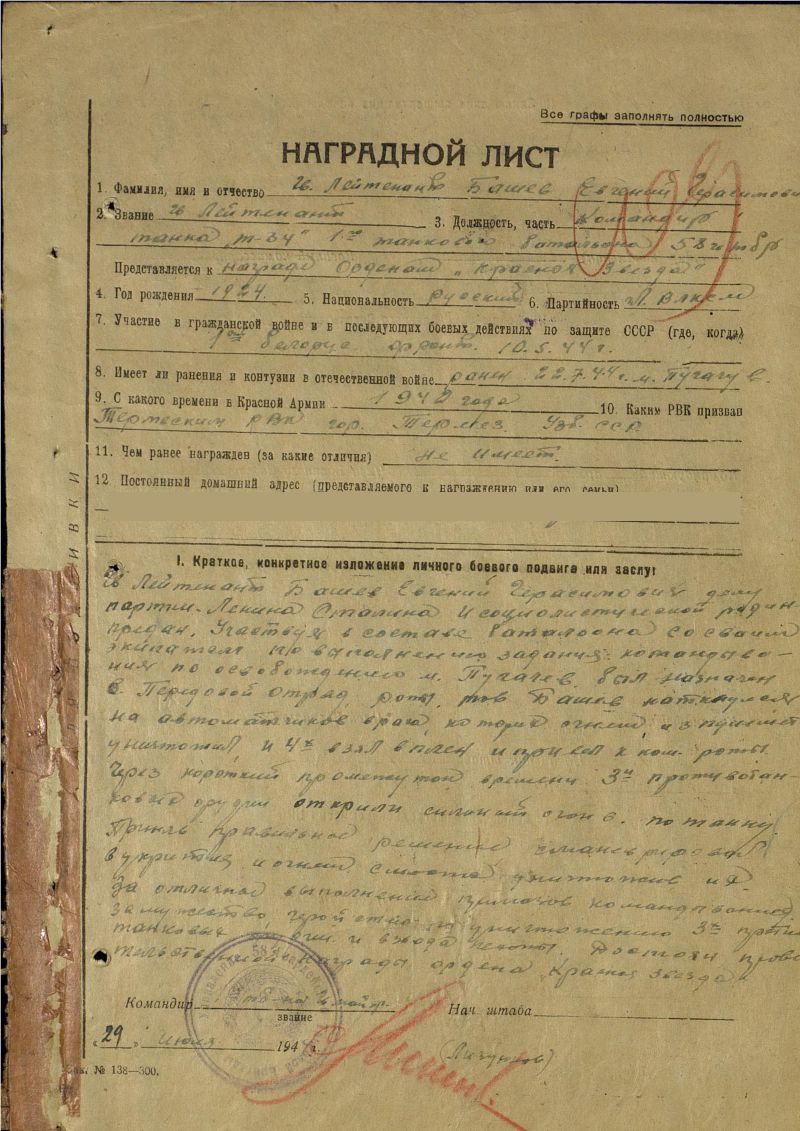 Все графы заполнять полностью
НАГРАДНОЙ ЛИСТ
1. Фамилия, имя и отчество Гв. Лейтенант Башев Евгений Герасимович
2. Звание Гв Лейтенант 3. Должность, часть Командир
танка „Т-34" 1го танкового батальона 58 гв тбр
Представляется к награде Орденом „Красная Звезда"
4. Год рождения 1924. 5. Национальность русский 6. Партийность Чл. ВЛКСМ
7. Участие в гражданской войне и в последующих боевых действиях по защите СССР (где, когда)
1ый Белорус фронт. 10.5.44 г.
8. Имеет ли ранения и контузии в отечественной войне ранен 22.7.44 г. м. Пугачув.
9. С какого времени в Красной Армии 1942 года 10. Каким РВК призван
Термезским РВК гор. Термез. Узб. ССР.
11. Чем ранее награжден (за какие отличия) не имеет.
12 Постоянный домашний адрес (представляемого к награждению или его семьи)
I. Краткое, конкретное изложение личного боевого подвига или заслуг
Гв Лейтенант Башев Евгений Герасимович делу
партии Ленина Сталина и социолистической родине
предан. Участвуя в составе баталиона со своим
экипажем по выполнению задания командова-
ния по освобождению м. Пугачев был назначен
в Передовой отряд роты, тов Башев наткнулся
на автоматчиков врага, которых огнем из пулимет
уничтожил, и 4х взял в плен и привел к ком. роты.
Через короткий промежуток времени 3и противотан-
ковых орудия открыли сильный огонь по танку.
Приняв правильное решение сманеврировав
в укрытия и огнем с места уничтожив их.
За отличное выполнение приказов командования
за мужество геройство уничтожению 3х проти
танковых и взвода пехоты. Достоин прави
тельственной награды ордена Красная звезда
Командир майор
звание
Нач. штаба
„29" июля 1944 г.
№ 138—300.